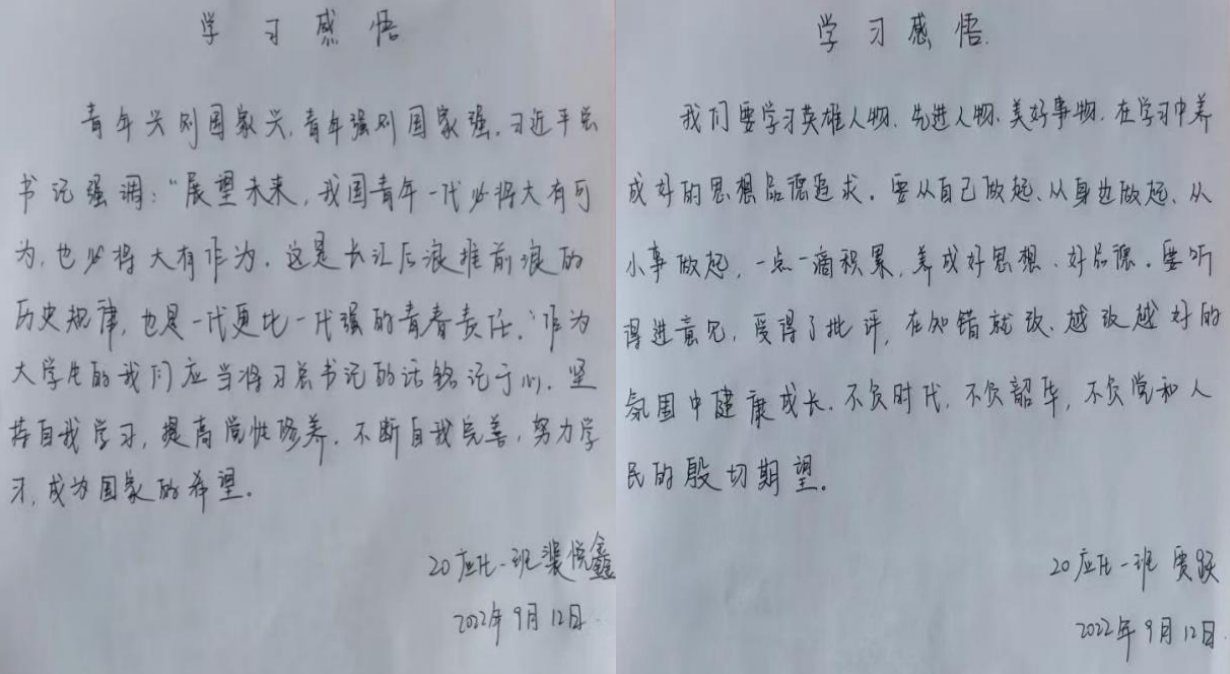 学习感悟
青年兴则国家兴，青年强则国家强。习近平总
书记强调："展望未来，我国青年一代必将大有可
为，也必将大有作为。这是长江后浪推前浪的
历史规律，也是一代更比一代强的青春责任。"作为
大学生的我们应当将习总书记的话铭记于心。坚
持自我学习，提高党性修养，不断自我完善，努力学
习，成为国家的希望。
20应化一班 裴悦鑫
2022年9月12日
学习感悟
我们要学习英雄人物、先进人物、美好事物，在学习中养
成好的思想品德追求。要从自己做起、从身边做起、从
小事做起，一点一滴积累，养成好思想、好品德。要听
得进意见，受得了批评，在知错就改、越改越好的
氛围中健康成长。不负时代，不负韶华，不负党和人
民的殷切期望。
20应化一班 贾跃
2022年9月12日